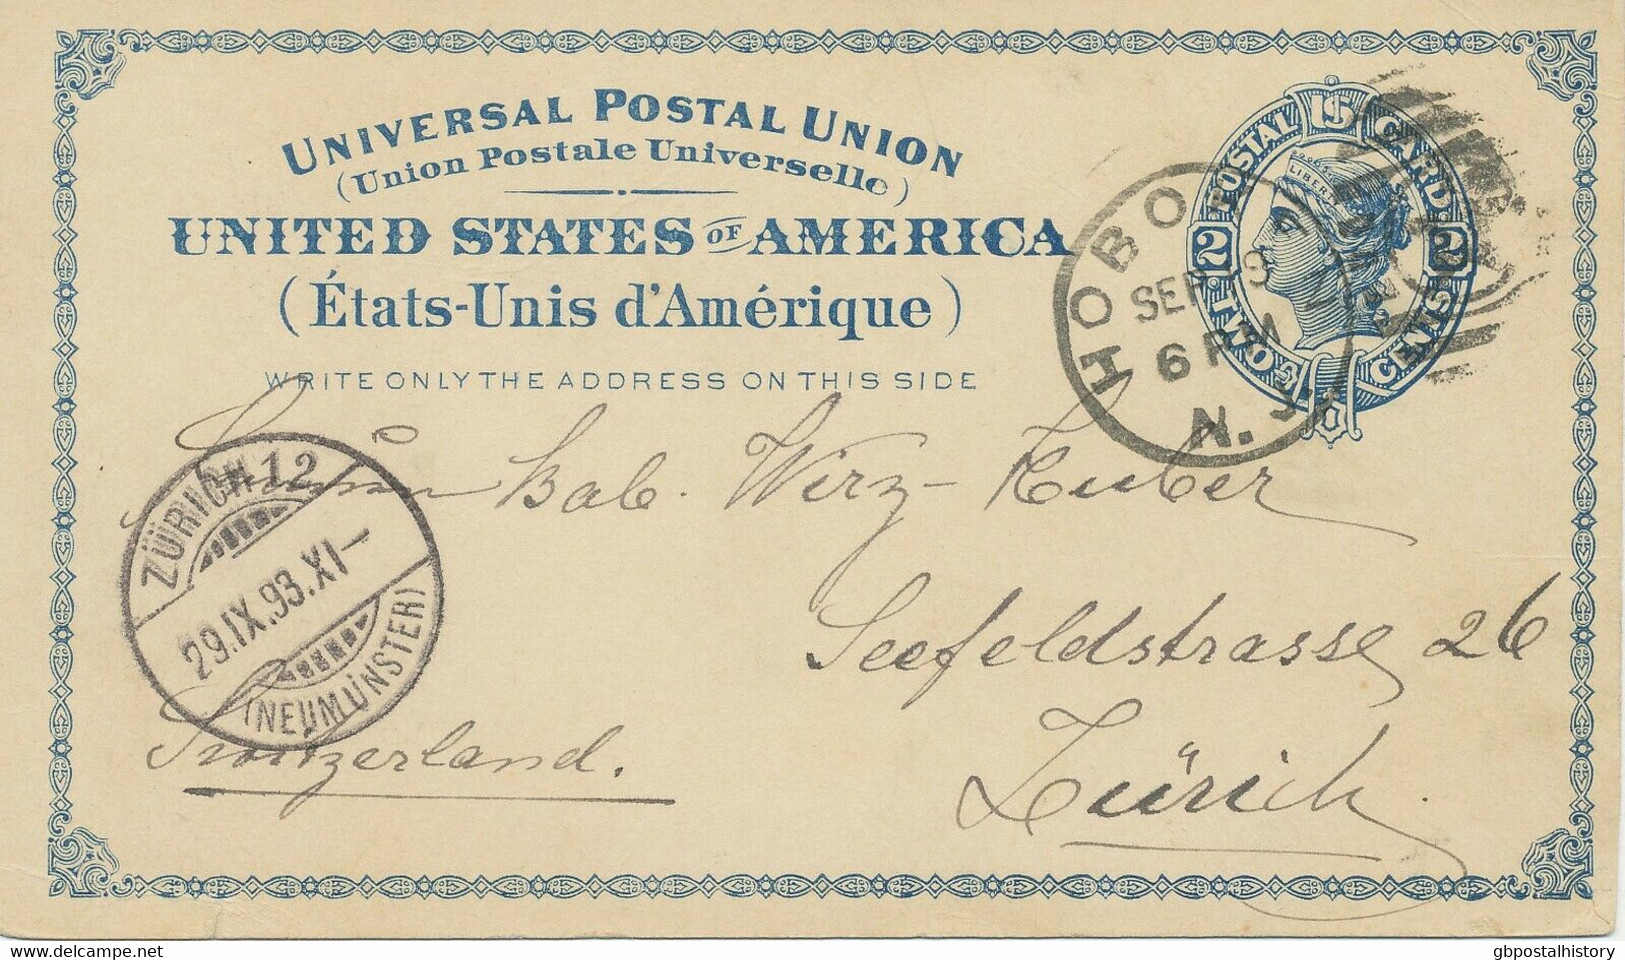 UNIVERSAL POSTAL UNION
(Union Postale Universelle)
UNITED STATES OF AMERICA
(États-Unis d'Amérique)
WRITE ONLY THE ADDRESS ON THIS SIDE
US
POSTAL CARD
LIBER
2 2
TWO CENTS
HOBO
SEP 9
6 PM
N. J.
Bab. Wirz-Huber
Seefeldstrasse 26
Zürich
Switzerland.
ZÜRICH 12
29.IX.93.XI-
(NEUMÜNSTER)
gbpostalhistory